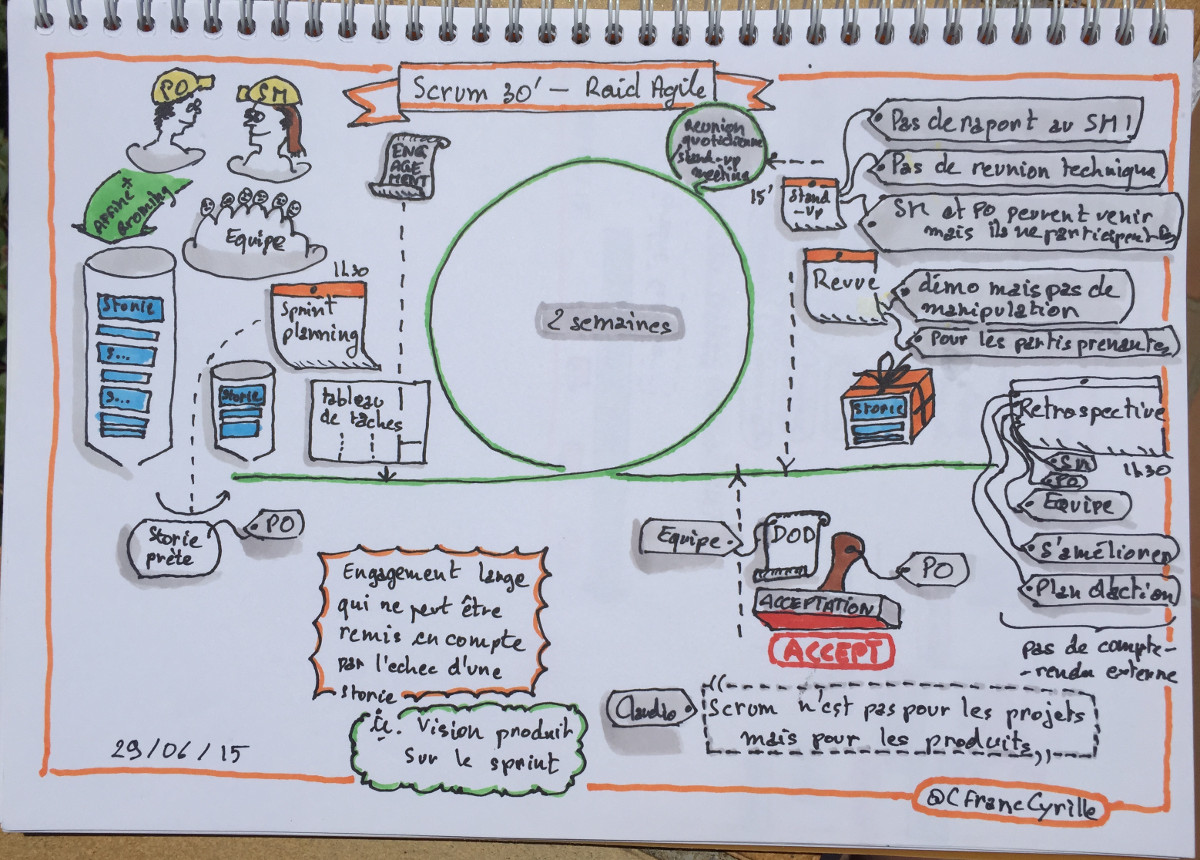 Scrum 30' — Raid Agile
PO
SM
Affiné *
Grooming
Equipe
ENG
AGE
MENT
Reunion
quotidienne
stand-up
meeting
15'
Stand
-up
Pas de raport au SM !
Pas de reunion technique
SM et PO peuvent venir
mais ils ne participent pas
Revue
démo mais pas de
manipulation
Pour les partis prenantes
Storie
S...
S...
1h30
Sprint
planning
Storie
tableau
de taches
2 semaines
Storie
Retrospective
1h30
SM
PO
Equipe
S'améliorer
Plan d'action
pas de compte-
-rendu externe
Storie
prête
PO
Equipe
DOD
PO
ACCEPTATION
ACCEPT
Engagement large
qui ne peut être
remis en compte
par l'echec d'une
storie
Vision produit
sur le sprint
Claudio
"Scrum n'est pas pour les projets
mais pour les produits"
29/06/15
@CFrancCyrille